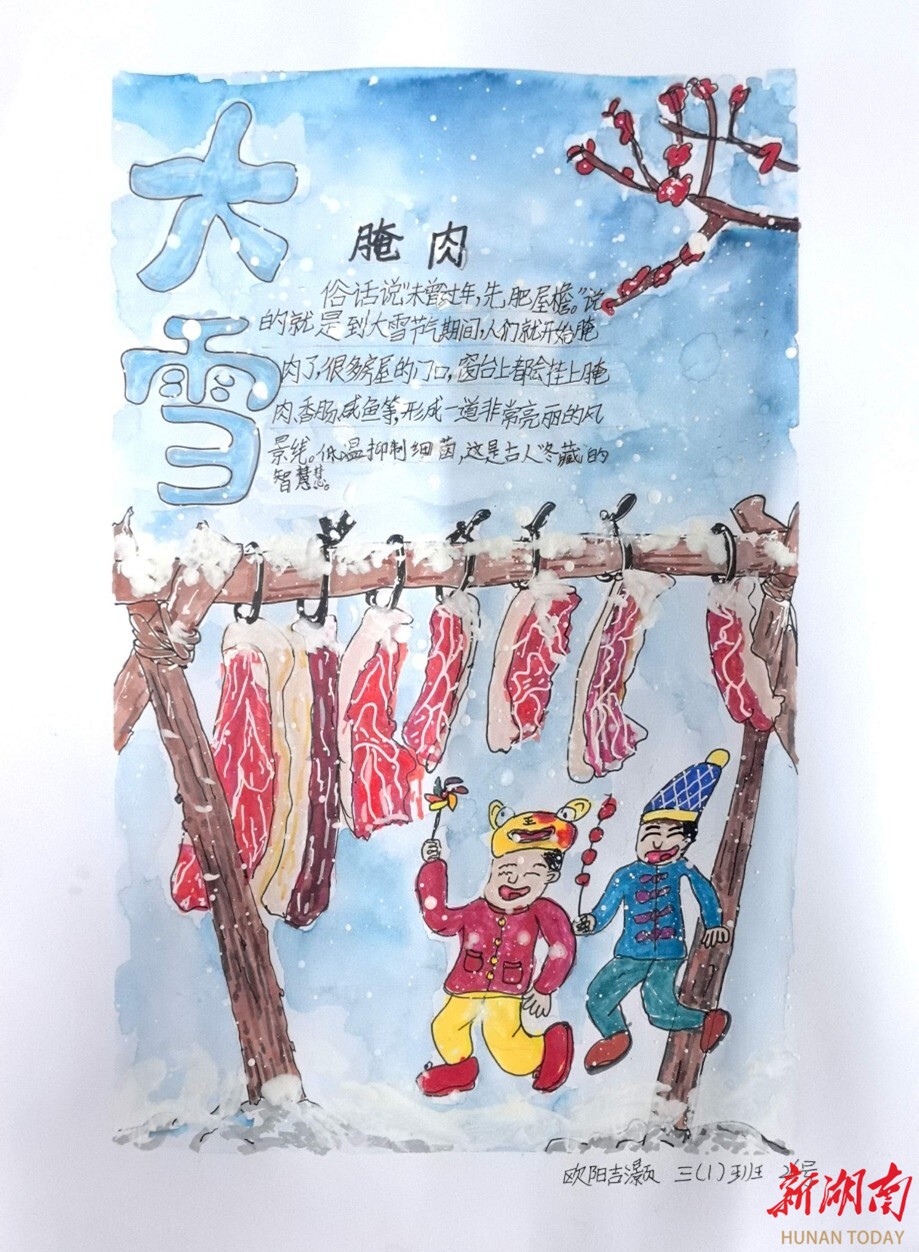 大雪
腌肉
俗话说“未曾过年,先肥屋檐。”说
的就是到大雪节气期间,人们就开始腌
肉了,很多房屋的门口,窗台上都会挂上腌
肉、香肠、咸鱼等,形成一道非常亮丽的风
景线。低温抑制细菌,这是古人“冬藏”的
智慧。
王
欧阳吉灏 三(1)班 号
新湖南
HUNAN TODAY